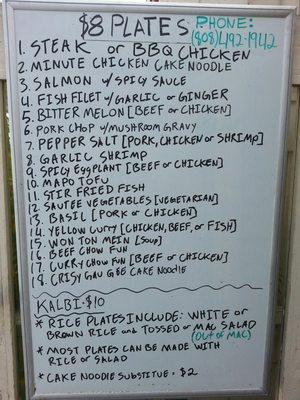 $8 PLATES
PHONE:
(808)492-1942
1. STEAK OR BBQ CHICKEN
2. MINUTE CHICKEN CAKE NOODLE
3. SALMON W/SPICY SAUCE
4. FISH FILET W/GARLIC OR GINGER
5. BITTER MELON [BEEF OR CHICKEN]
6. PORK CHOP W/MUSHROOM GRAVY
7. PEPPER SALT [PORK, CHICKEN OR SHRIMP]
8. GARLIC SHRIMP
9. SPICY EGGPLANT [BEEF OR CHICKEN]
10. MAPO TOFU
11. STIR FRIED FISH
12. SAUTEE VEGETABLES [VEGETARIAN]
13. BASIL [PORK OR CHICKEN]
14. YELLOW CURRY [CHICKEN, BEEF, OR FISH]
15. WON TON MEIN [SOUP]
16. BEEF CHOW FUN
17. CURRY CHOW FUN [BEEF OR CHICKEN]
18. CRISPY GAU GEE CAKE NOODLE
KALBI-$10
* RICE PLATES INCLUDE: WHITE OR
BROWN RICE AND TOSSED OR MAC SALAD
(OUT OF MAC)
* MOST PLATES CAN BE MADE WITH
RICE OR SALAD
* CAKE NOODLE SUBSTITUE: $2